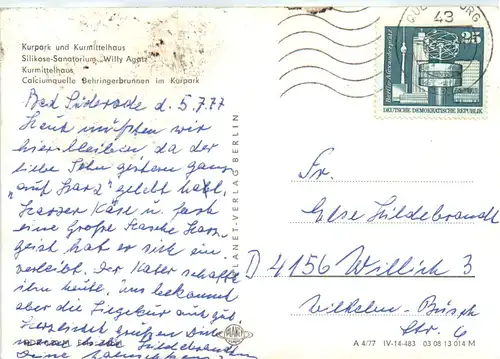 Kurpark und Kurmittelhaus
Silikose-Sanatorium „Willy Agatz
Kurmittelhaus
Calciumquelle Behringerbrunnen im Kurpark
Bad Suderode d. 5.7.77
Heut mußten wir
hierbleiben da der
liebe Sohn gestern ganz
„auf Harz" gelebt hat,
Harzer Käse u. fast
eine Große Flasche Harz-
geist hat er sich ein-
verleibt. Der Kater schaffte
ihn heute. Uns bekommt
aber die Liegekur auch gut
Herzlichst grüßen Dich
PLANET-VERLAG BERLIN
43
25
Berlin-Alexanderplatz
DEUTSCHE DEMOKRATISCHE REPUBLIK
Fr.
Else Hildebrandt
D 4156 Willich 3
Wilhelm-Busch
Str. 6
A 4/77 IV-14-483 03 08 13 014 M